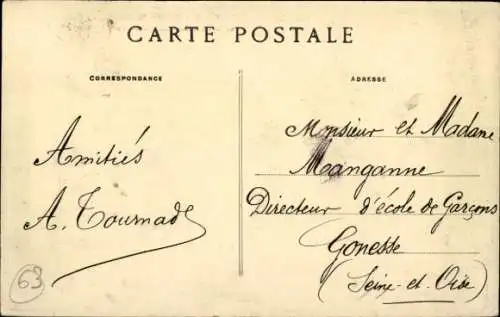 CARTE POSTALE
CORRESPONDANCE
ADRESSE
Monsieur et Madame
Manganne
Directeur d'école de Garçons
Gonesse
(Seine-et-Oise)
Amitiés
A. Tournade
63